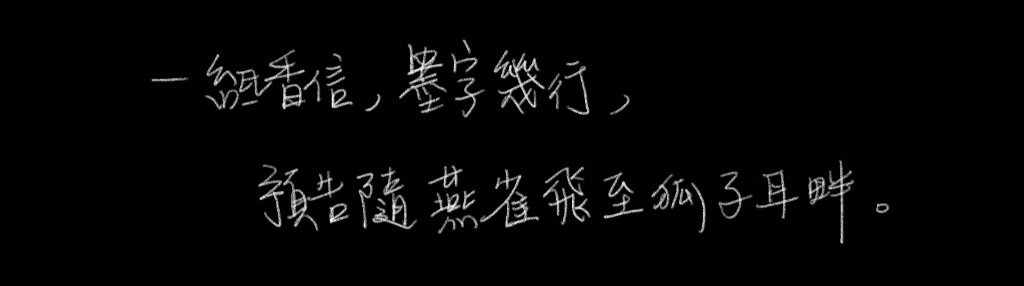 一紙香信，墨字幾行，
預告隨燕雀飛至狐子耳畔。